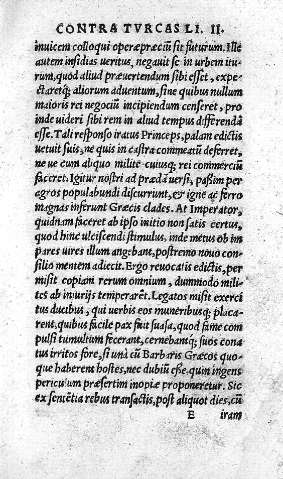 CONTRA TVRCAS LI. II.
inuicem colloqui operæprecium sit futurum. Ille
autem insidias ueritus, negauit se in urbem itu-
rum, quòd aliud præuertendum sibi esset, expe-
ctaretq; aliorum aduentum, sine quibus nullum
maioris rei negocium incipiendum censeret, pro
inde uideri sibi rem in aliud tempus differendã
esse. Tali responso iratus Princeps, palam edictis
uetuit suis, ne quis in castra commeatũ deferret,
ne ue cum aliquo milite cuiusq; rei commercium
faceret. Igitur nostri ad prædã uersi, paßim per
agros populabundi discurrunt, et igne ac ferro
magnas inferunt Græcis clades. At Imperator,
quidnam faceret ab ipso initio non satis certus,
quòd hinc ulciscendi stimulus, inde metus ob im
pares uires illum angebant, postremo nouo con
silio mentem adiecit. Ergo reuocatis edictis, per
misit copiam rerum omnium, dummodo mili-
tes ab iniurijs temperarẽt. Legatos misit exerci
tus ducibus, qui uerbis eos muneribusq; placa-
rent, quibus facile pax fuit suasa, quod fame com
pulsi tumultum fecerant, cernebantq; suos cona
tus irritos fore, si unà cũ Barbaris Græcos quo-
que haberent hostes, nec dubiũ esse, quin ingens
periculum præsertim inopiæ proponeretur. Sic
ex sentẽtia rebus transactis, post aliquot dies, cũ
E iram